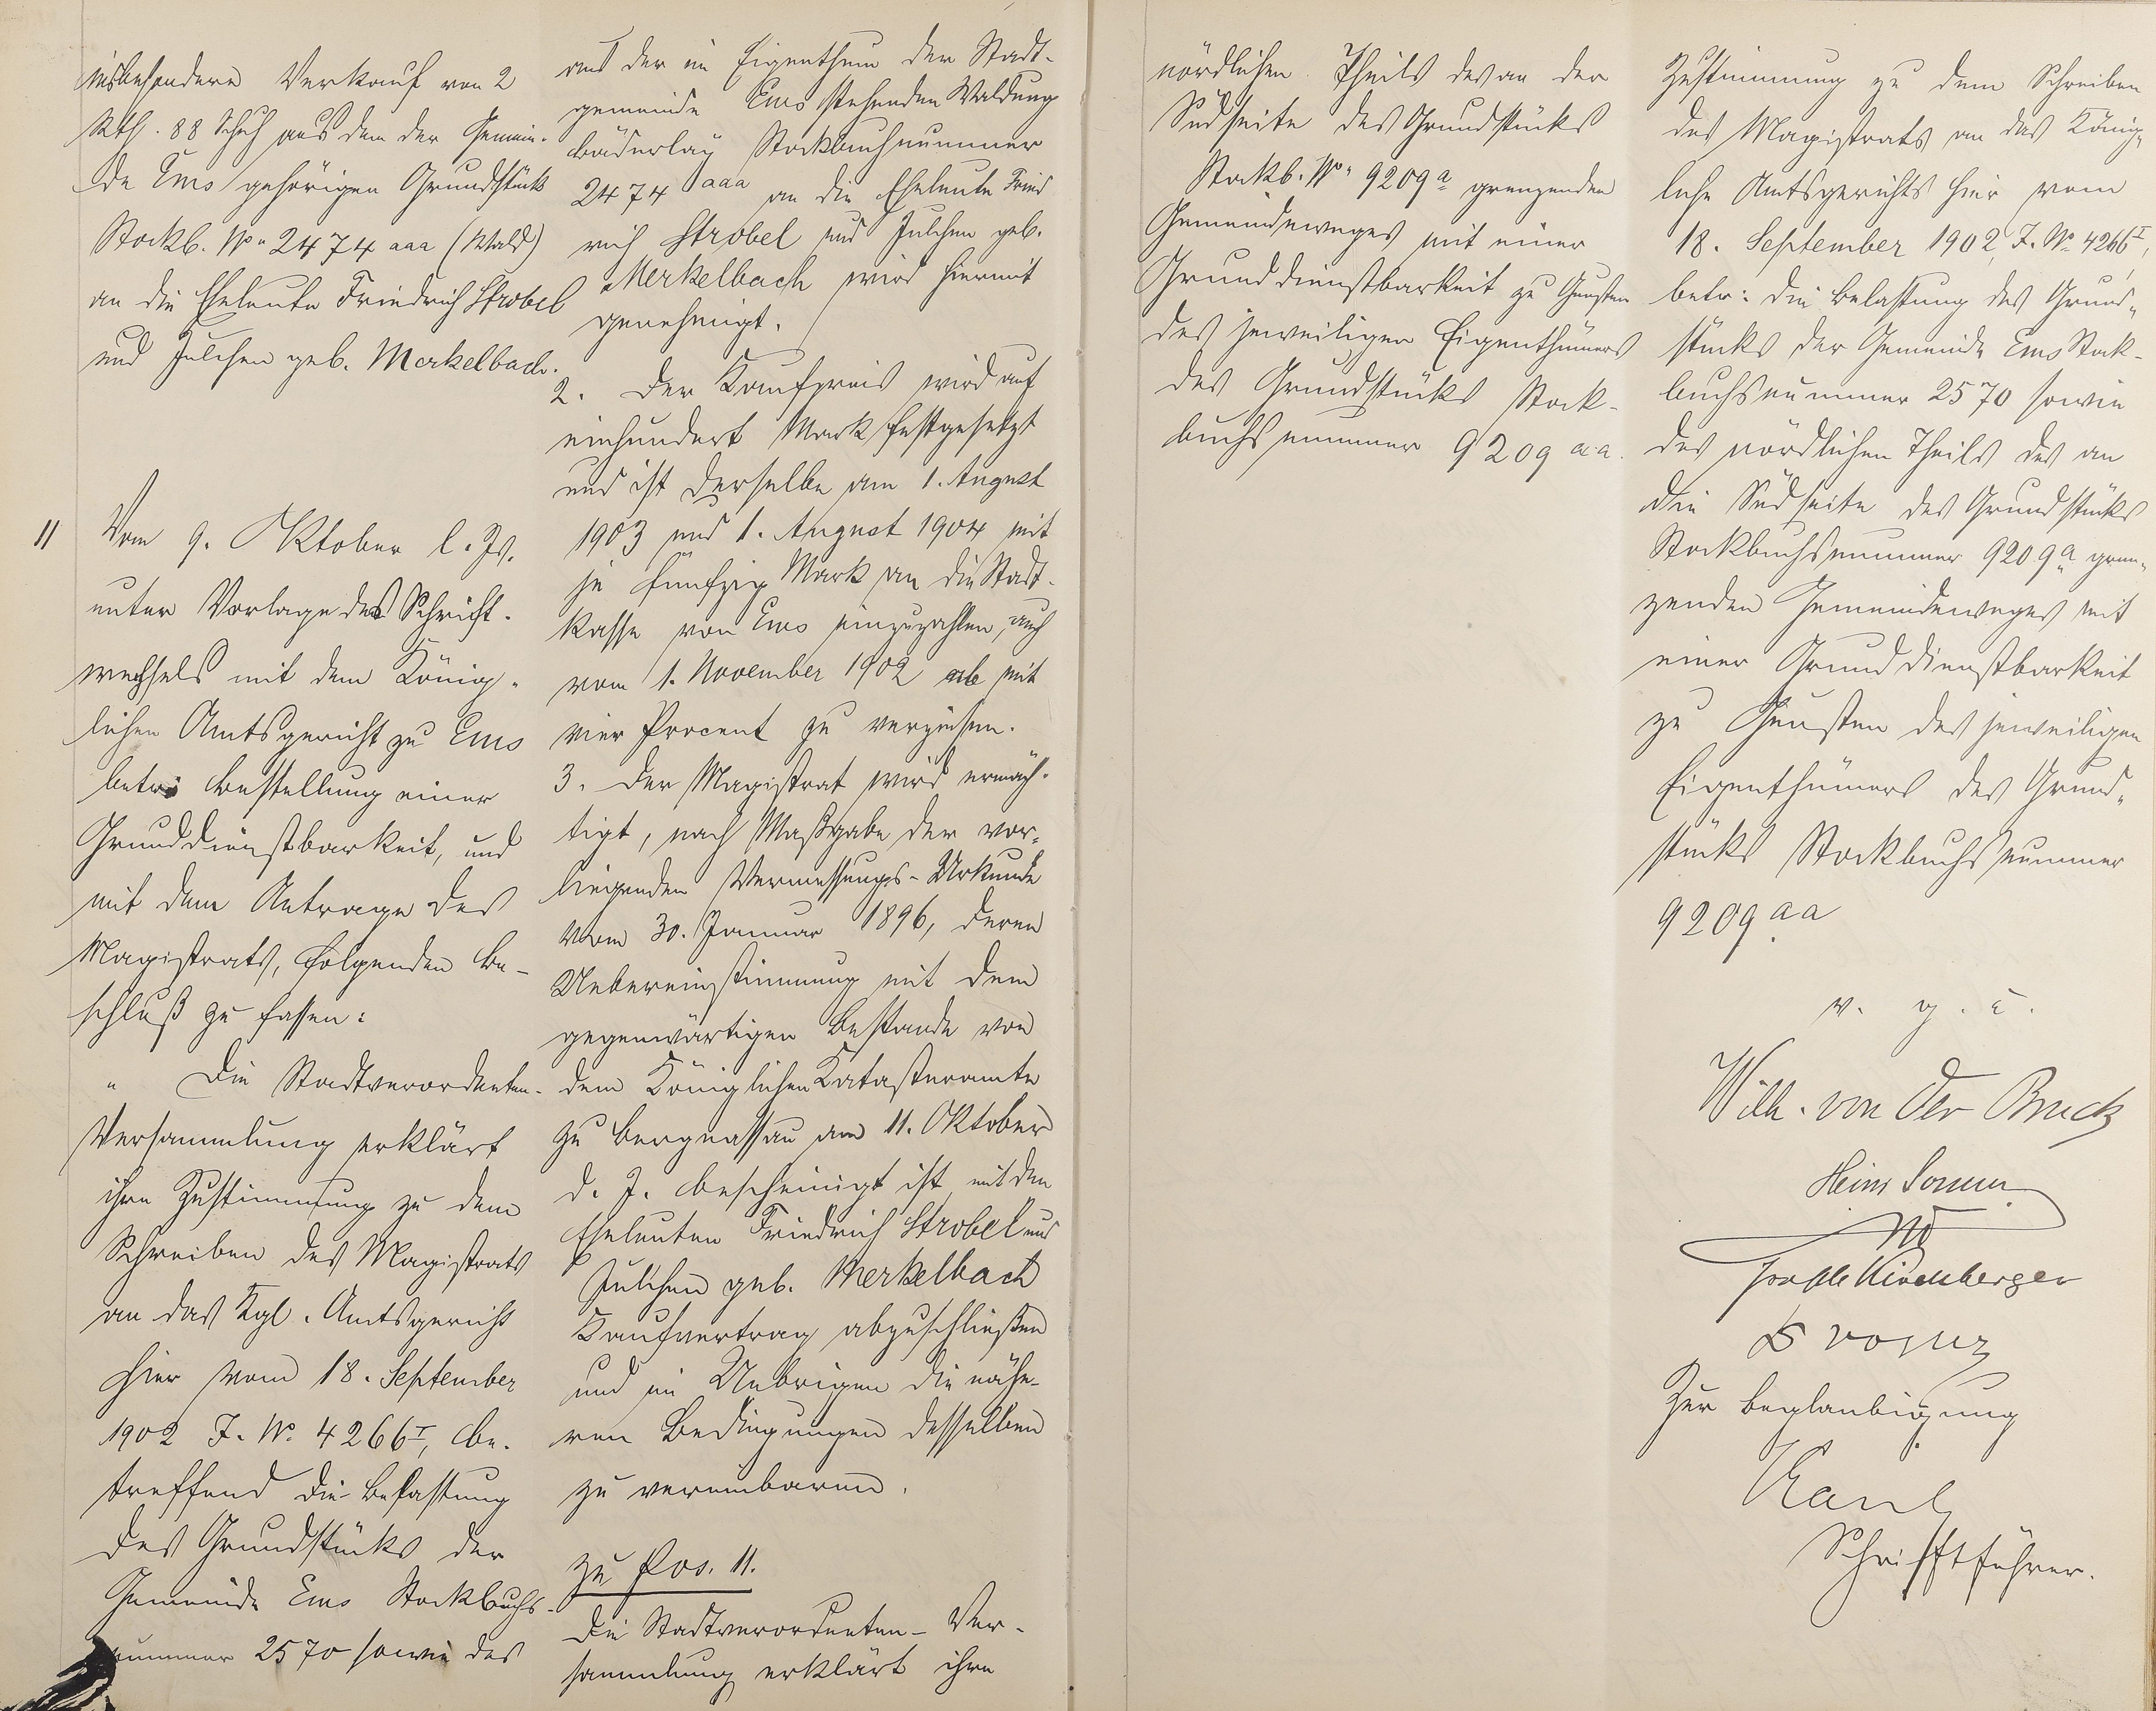 insbesondere Verkauf von 2
Rth. 88 Schuh aus dem der Gemein-
de Ems gehörigen Grundstück
Stockb. No. 2474 aaa (Wald)
an die Eheleute Friedrich Strobel
und Julchen geb. Merkelbach.
11 Vom 9. Oktober l. Js.
unter Vorlage des Schrift-
wechsels mit dem König-
lichen Amtsgericht zu Ems
betr: Bestellung einer
Grunddienstbarkeit, und
mit dem Antrage des
Magistrats, folgenden Be-
schluß zu fassen:
" Die Stadtverordneten-
Versammlung erklärt
ihre Zustimmung zu dem
Schreiben des Magistrats
an das Kgl. Amtsgericht
hier vom 18. September
1902 J. No. 4266 I, be-
treffend die Belastung
des Grundstücks der
Gemeinde Ems Stockbuchs-
nummer 2570 sowie des
aus der im Eigenthum der Stadt-
gemeinde Ems stehenden Waldung
Bäderlay Stockbuchnummer
2474 aaa an die Eheleute Fried
rich Strobel und Julchen geb.
Merkelbach wird hiermit
genehmigt.
2. Der Kaufpreis wird auf
einhundert Mark festgesetzt
und ist derselbe am 1. August
1903 und 1. August 1904 mit
je fünfzig Mark an die Stadt-
kasse von Ems einzuzahlen, auch
vom 1. November 1902 ab mit
vier Procent zu verzinsen.
3. Der Magistrat wird ermäch-
tigt, nach Maßgabe der vor-
liegenden Vermessungs-Urkunde
vom 30. Januar 1896, deren
Uebereinstimmung mit dem
gegenwärtigen Bestande von
dem Königlichen Katasteramte
zu Bergnassau am 11. Oktober
d. J. bescheinigt ist mit den
Eheleuten Friedrich Strobel und
Julchen geb. Merkelbach
Kaufvertrag abzuschließen
und im Uebrigen die nähe-
ren Bedingungen desselben
zu vereinbaren.
zu Pos. 11.
Die Stadtverordneten-Ver-
sammlung erklärt ihre
nördlichen Theils des an der
Südseite des Grundstücks
Stockb. No. 9209 a grenzenden
Gemeindeweges mit einer
Grunddienstbarkeit zu Gunsten
des jeweiligen Eigenthümers
des Grundstücks Stock-
buchsnummer 9209 aa.
Zustimmung zu dem Schreiben
des Magistrats an das König-
liche Amtsgerichts hier vom
18. September 1902, J. No. 4266 I,
betr: die Belastung des Grund-
stücks der Gemeinde Ems Stock-
buchsnummer 2570 sowie
des nördlichen Theils des an
die Südseite des Grundstücks
Stockbuchsnummer 9209 a gren-
zenden Gemeindeweges mit
einer Grunddienstbarkeit
zu Gunsten des jeweiligen
Eigenthümers des Grund-
stücks Stockbuchsnummer
9209 aa
v. g. u.
Wilh. von der Bruck
Heinr Sommer
Joseph Kirchberger
Zur Beglaubigung
Kaul
Schriftführer.